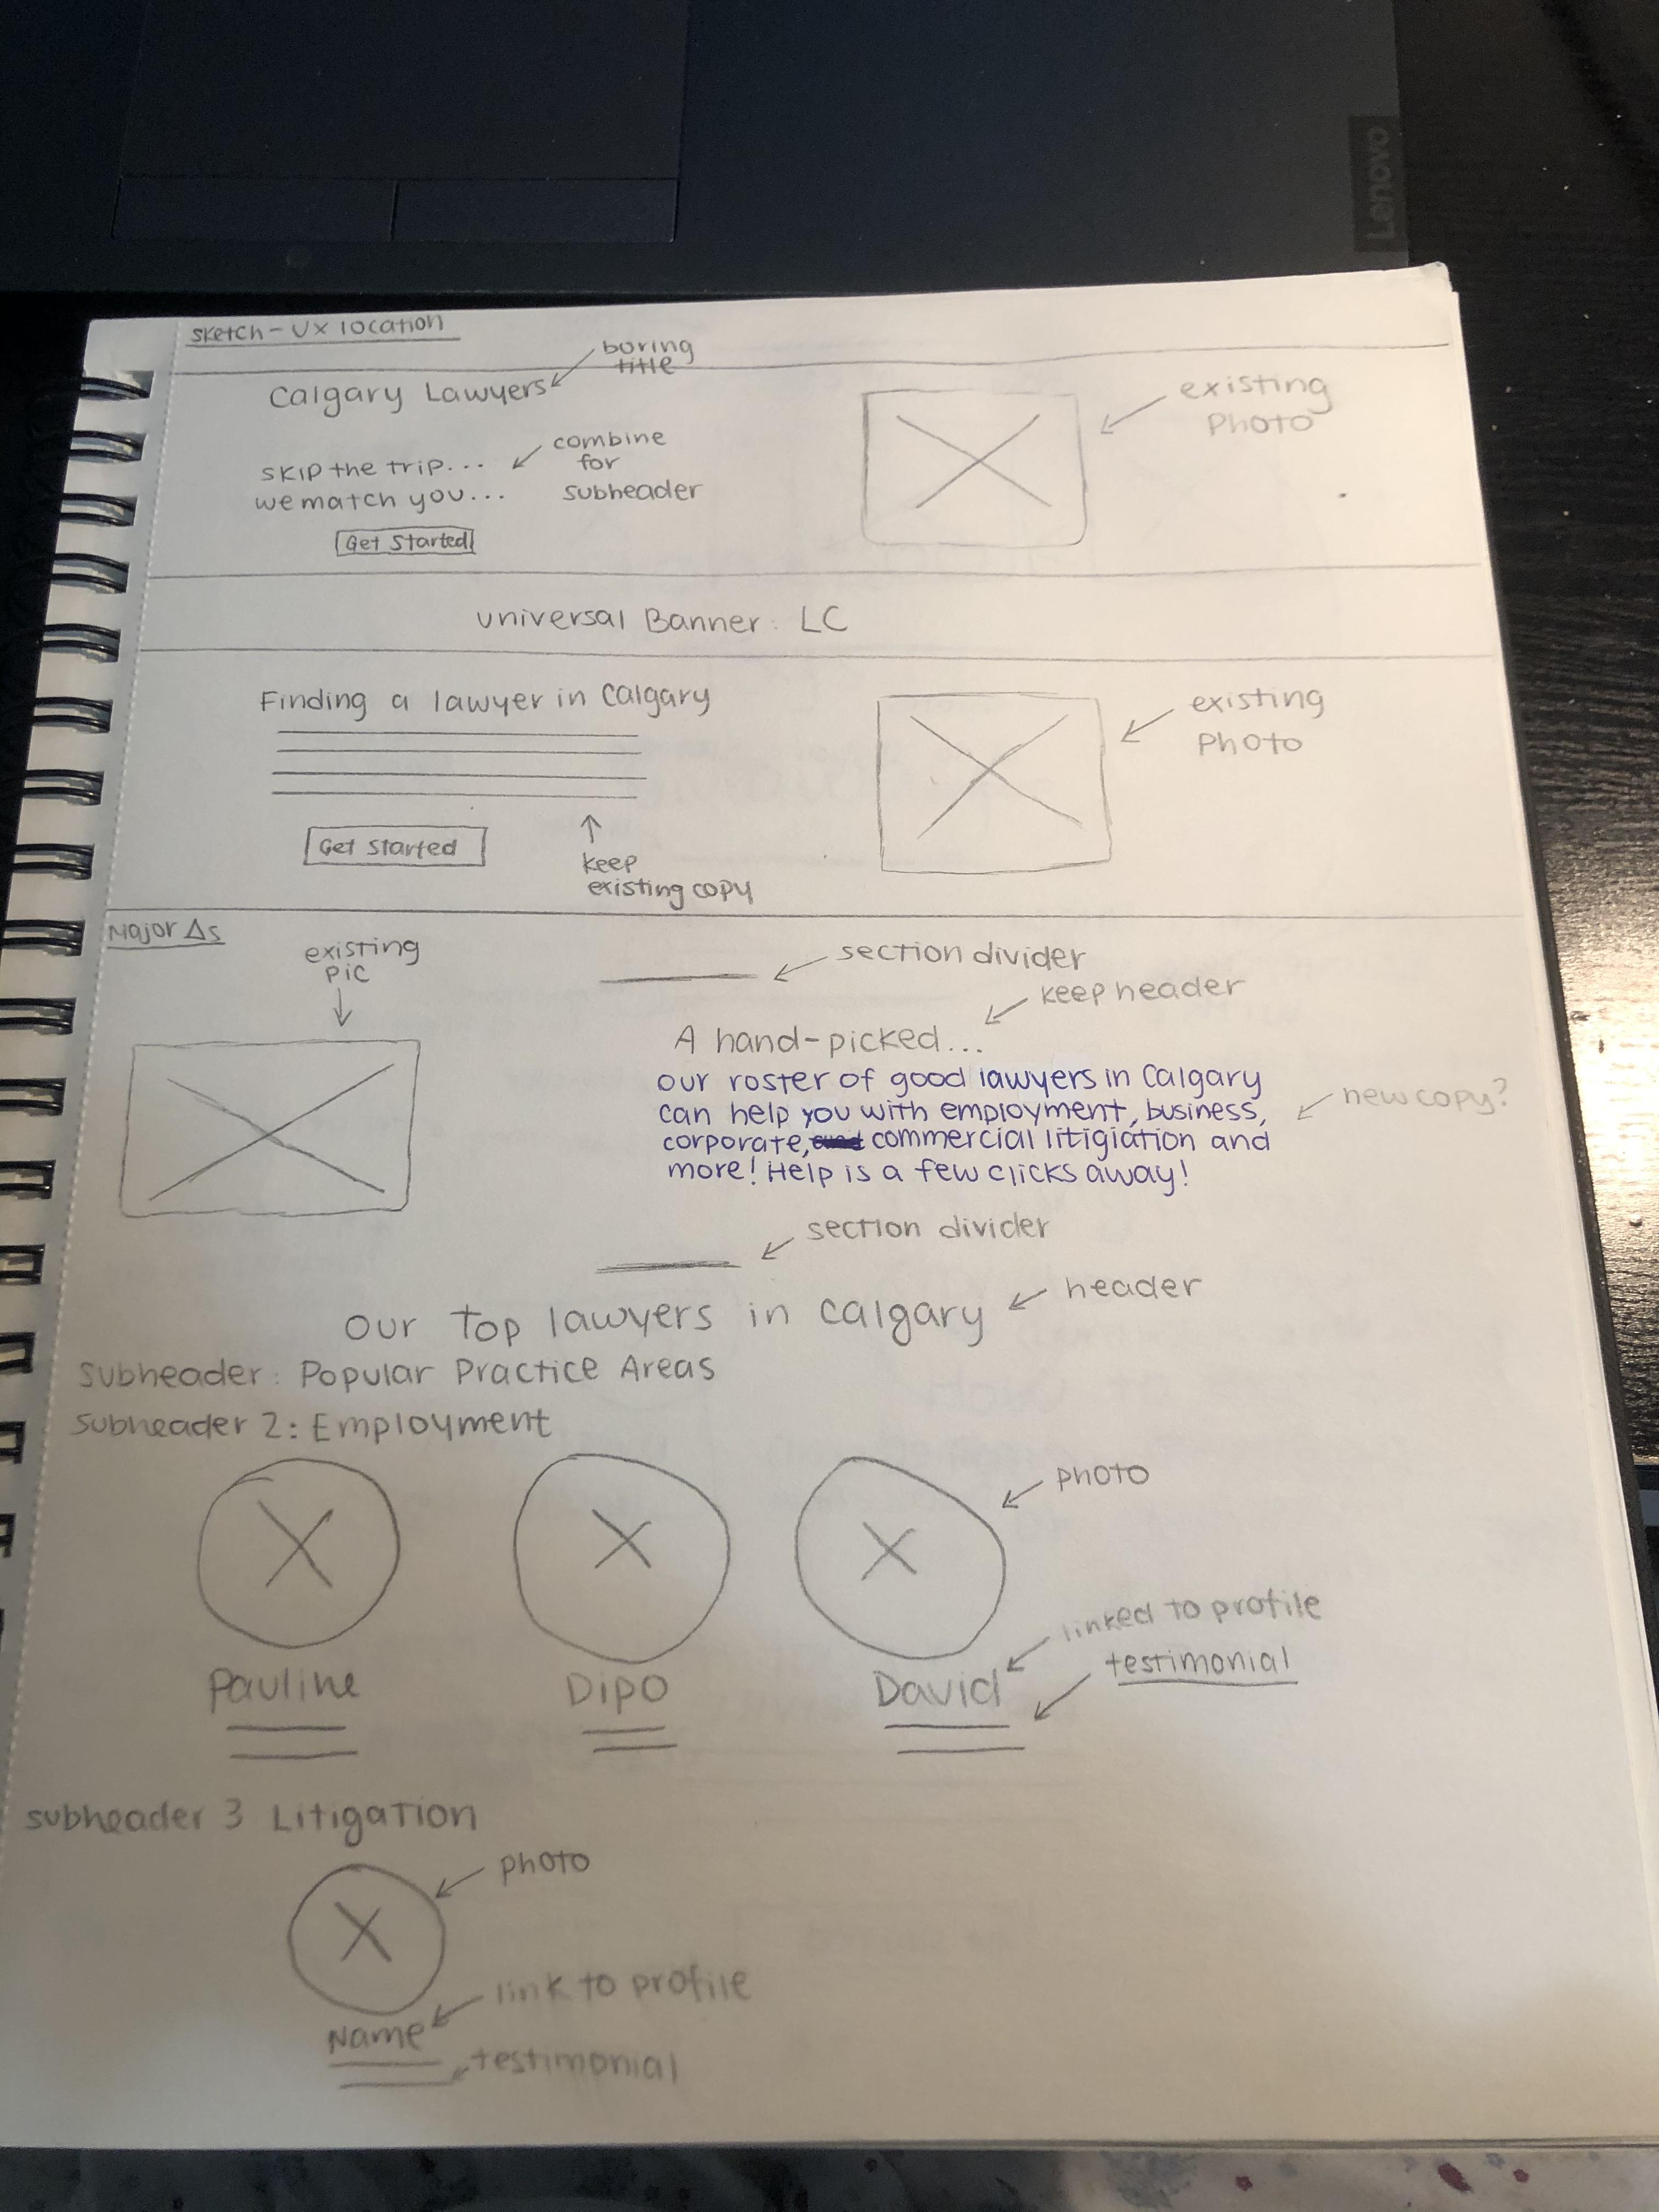 Lenovo
Sketch - UX location
boring
title
Calgary Lawyers
existing
Photo
combine
for
subheader
skip the trip...
we match you...
Get Started
universal Banner: LC
Finding a lawyer in Calgary
existing
Photo
Get started
keep
existing copy
Major Δs
existing
pic
section divider
keep header
A hand-picked...
our roster of good lawyers in Calgary
can help you with employment, business,
corporate, and commercial litigiation and
more! Help is a few clicks away!
new copy?
section divider
header
Our Top lawyers in Calgary
subheader: Popular Practice Areas
subheader 2: Employment
photo
linked to profile
testimonial
Pauline
Dipo
David
subheader 3 Litigation
photo
link to profile
Name
testimonial